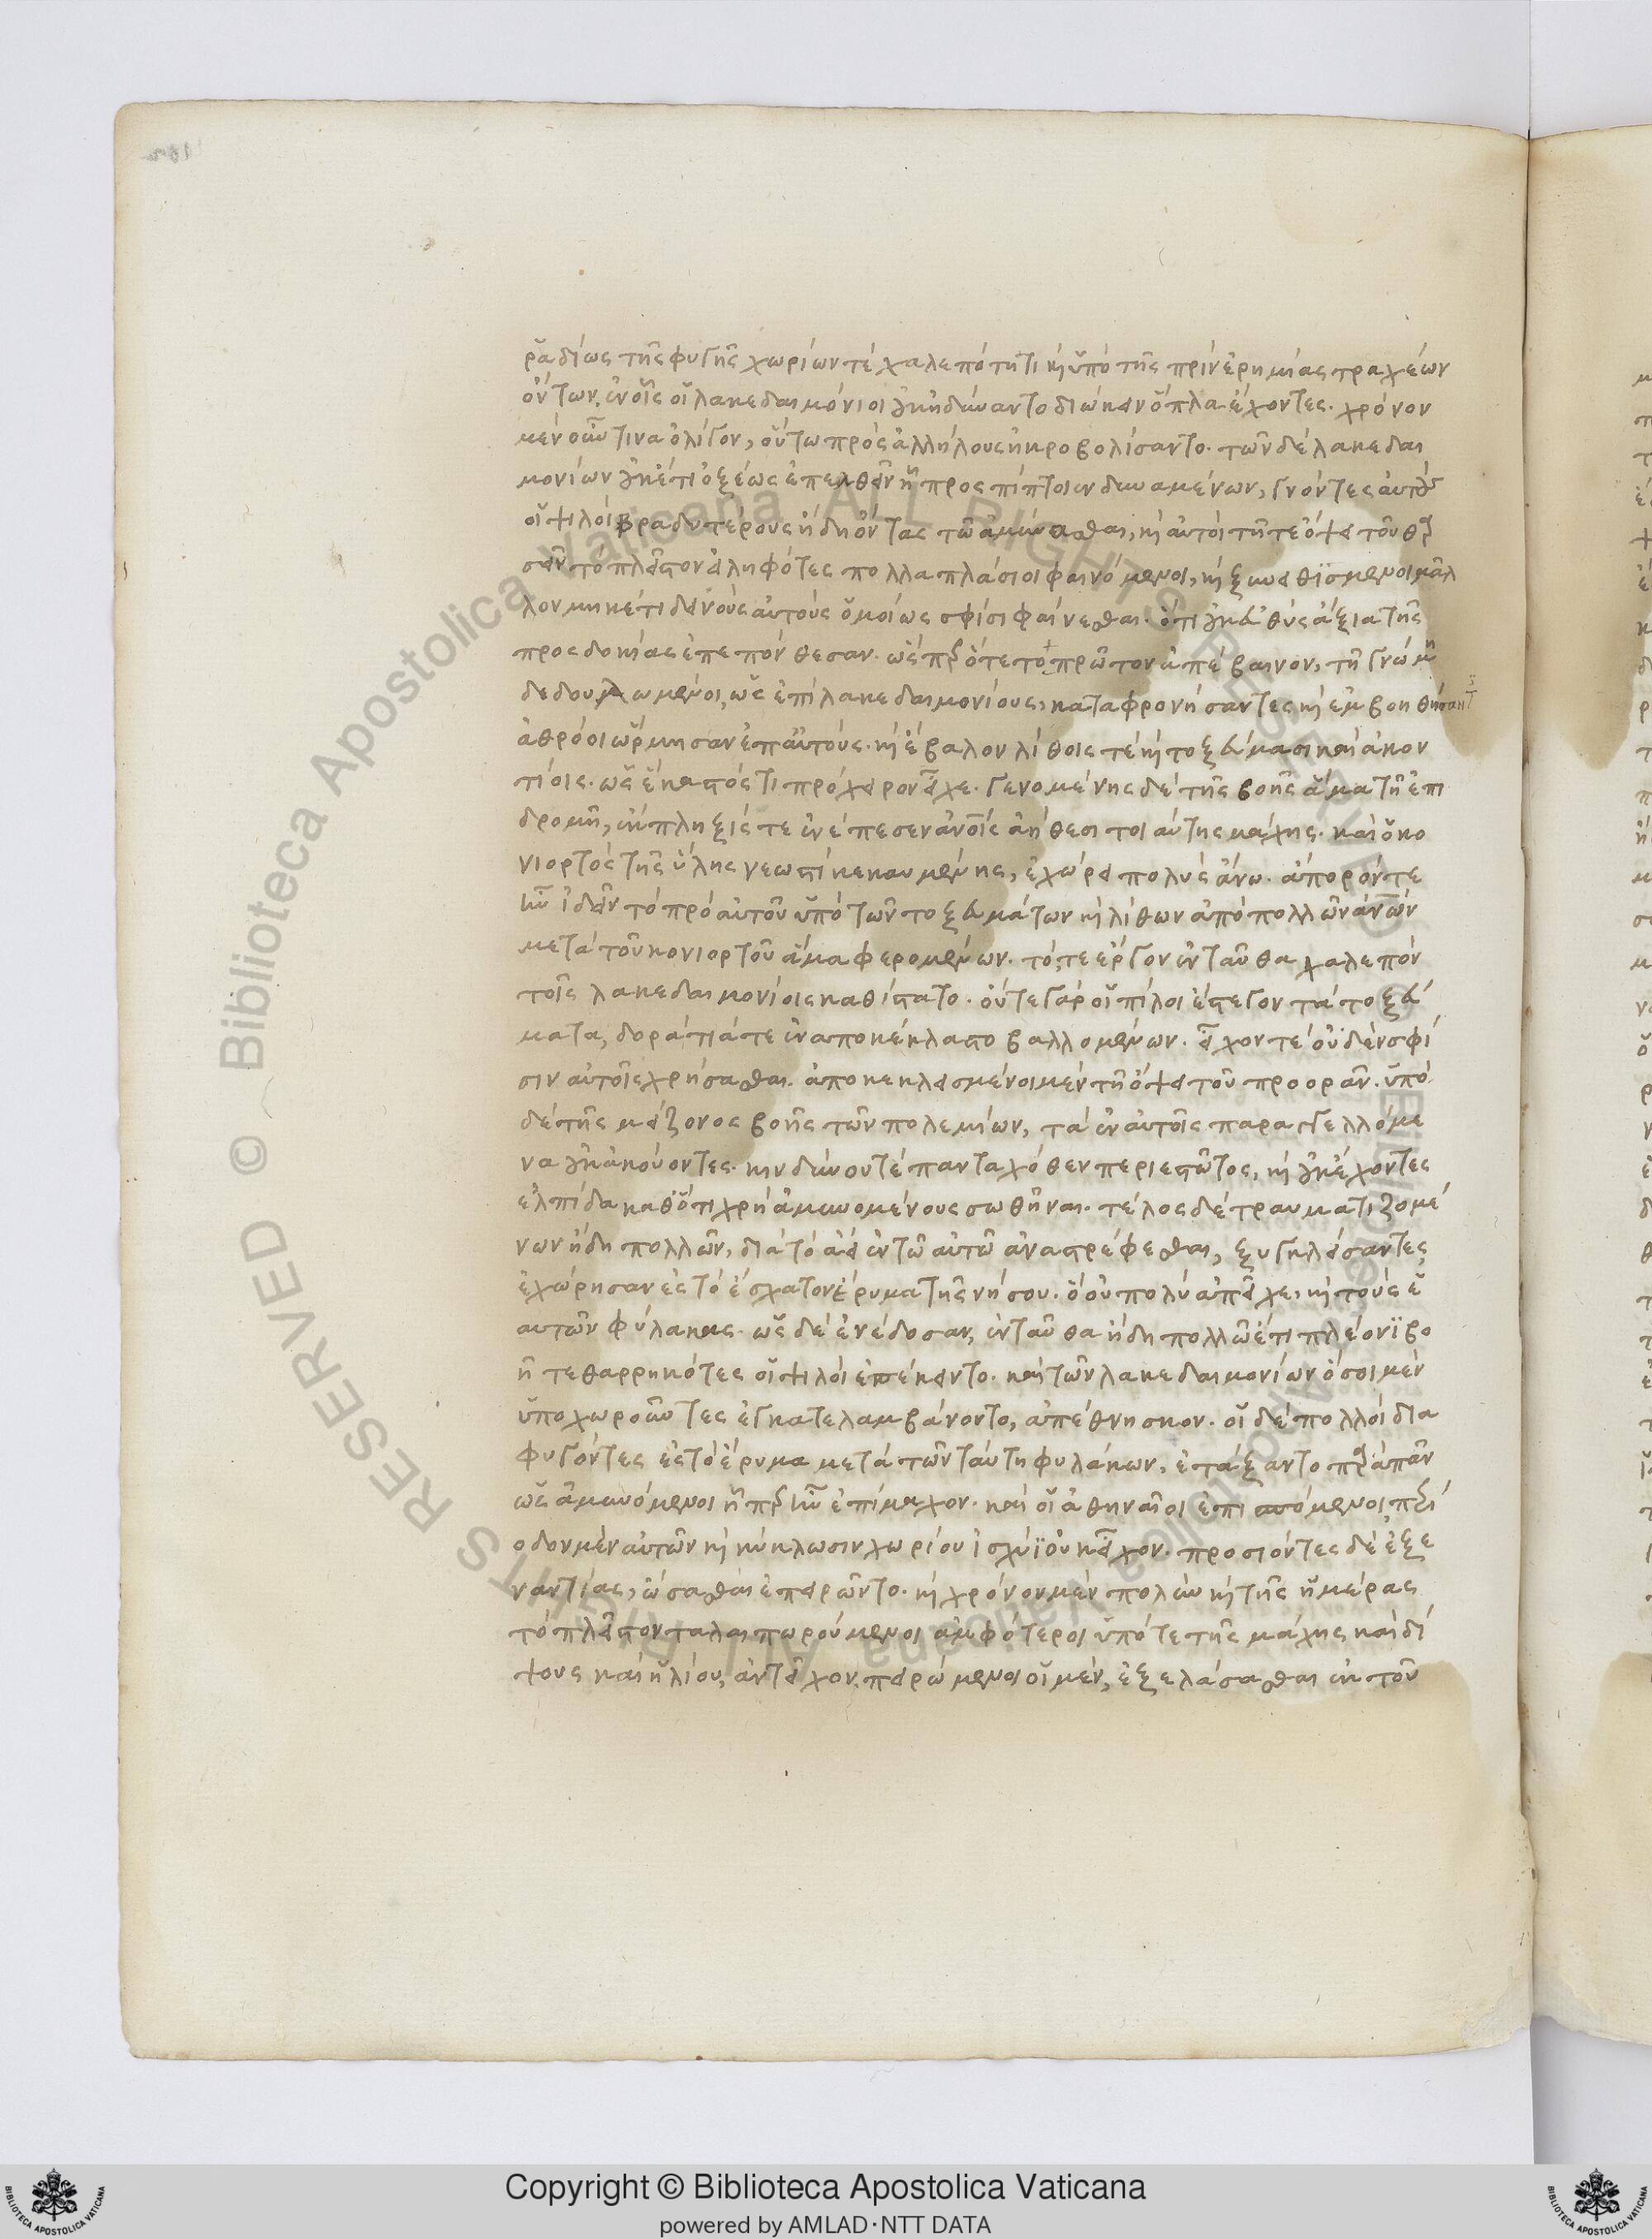 ῥᾳδίως τῆς φυγῆς χωρίων τὲ χαλεπότητι κὶ ὑπὸ τῆς πρὶν ἐρημίας τραχέων
ὄντων, ἐν οἷς οἱ λακεδαιμόνιοι οὐκ ἠδύναντο διώκειν ὅπλα ἔχοντες. χρόνον
μὲν οὖν τινα ὀλίγον, οὕτω πρὸς ἀλλήλους ἠκροβολίσαντο. τῶν δὲ λακεδαι
μονίων οὐκέτι ὀξέως ἐπελθεῖν ᾗ προσπίπτοιεν δυναμένων, γνόντες αὐτοὺς
οἱ ψιλοὶ βραδυτέρους ἤδη ὄντας τῷ ἀμύνασθαι, κὶ αὐτοὶ τῇ τε ὄψει τοῦ θαρ
σεῖν τὸ πλεῖστον εἰληφότες πολλαπλάσιοι φαινόμενοι, κὶ ξυνειθισμένοι μᾶλ
λον μηκέτι δεινοὺς αὐτοὺς ὁμοίως σφίσι φαίνεσθαι. ὅτι οὐκ εὐθὺς ἄξια τῆς
προσδοκίας ἐπεπόνθεσαν. ὥσπερ ὅτε τὸ πρῶτον ἀπέβαινον, τῇ γνώμῃ
δεδουλωμένοι, ὡς ἐπὶ λακεδαιμονίους, καταφρονήσαντες κὶ ἐμβοηθήσαντες
ἀθρόοι ὥρμησαν ἐπ αὐτούς. κὶ ἔβαλον λίθοις τὲ κὶ τοξεύμασι καὶ ἀκον
τίοις. ὡς ἕκαστός τι πρόχειρον εἶχε. γενομένης δὲ τῆς βοῆς ἅμα τῇ ἐπι
δρομῇ, ἔκπληξίς τε ἐνέπεσεν ἀνοῖς ἀήθεσι τοιαύτης μάχης. καὶ ὁ κο
νιορτὸς τῆς ὕλης νεωστὶ κεκαυμένης, ἐχώρει πολὺς ἄνω. ἄπορόν τε
ἦν ἰδεῖν τὸ πρὸ αὐτοῦ ὑπὸ τῶν τοξευμάτων κὶ λίθων ἀπὸ πολλῶν ἀνῶν
μετὰ τοῦ κονιορτοῦ ἅμα φερομένων. τό, τε ἔργον ἐνταῦθα χαλεπὸν
τοῖς λακεδαιμονίοις καθίστατο. οὔτε γὰρ οἱ πῖλοι ἔστεγον τὰ τοξεύ
ματα, δοράτιά τε ἐναποκέκλαστο βαλλομένων. εἶχόν τε οὐδὲν σφί
σιν αὐτοῖς χρήσασθαι. ἀποκεκλεισμένοι μὲν τῇ ὄψει τοῦ προορᾶν. ὑπὸ
δὲ τῆς μείζονος βοῆς τῶν πολεμίων, τὰ ἐν αὐτοῖς παραγγελλόμε
να οὐκ ἀκούοντες. κινδύνου τὲ πανταχόθεν περιεστῶτος, κὶ οὐκ ἔχοντες
ἐλπίδα καθ ὅτι χρὴ ἀμυνομένους σωθῆναι. τέλος δὲ τραυματιζομέ
νων ἤδη πολλῶν, διὰ τὸ ἀεὶ ἐν τῷ αὐτῷ ἀναστρέφεσθαι, ξυγκλείσαντες
ἐχώρησαν ἐς τὸ ἔσχατον ἔρυμα τῆς νήσου. ὃ οὐ πολὺ ἀπεῖχε, κὶ τοὺς ἑ
αυτῶν φύλακας. ὡς δὲ ἐνέδοσαν, ἐνταῦθα ἤδη πολλῷ ἔτι πλέονι βο
ῇ τεθαρρηκότες οἱ ψιλοὶ ἐπέκειντο. καὶ τῶν λακεδαιμονίων ὅσοι μὲν
ὑποχωροῦντες ἐγκατελαμβάνοντο, ἀπέθνησκον. οἱ δὲ πολλοὶ δια
φυγόντες ἐς τὸ ἔρυμα μετὰ τῶν ταύτῃ φυλάκων, ἐτάξαντο παρὰ πᾶν
ὡς ἀμυνόμενοι ᾗπερ ἦν ἐπίμαχον. καὶ οἱ ἀθηναῖοι ἐπισπόμενοι περί
οδον μὲν αὐτῶν κὶ κύκλωσιν χωρίου ἰσχύϊ οὐκ εἶχον. προσιόντες δὲ ἐξ ἐ
ναντίας, ὤσασθαι ἐπειρῶντο. κὶ χρόνον μὲν πολὺν κὶ τῆς ἡμέρας
τὸ πλεῖστον ταλαιπωρούμενοι ἀμφότεροι ὑπό τε τῆς μάχης καὶ δί
ψους καὶ ἡλίου, ἀντεῖχον, πειρώμενοι οἱ μὲν, ἐξελάσασθαι ἐκ τοῦ
Copyright © Biblioteca Apostolica Vaticana
powered by AMLAD·NTT DATA